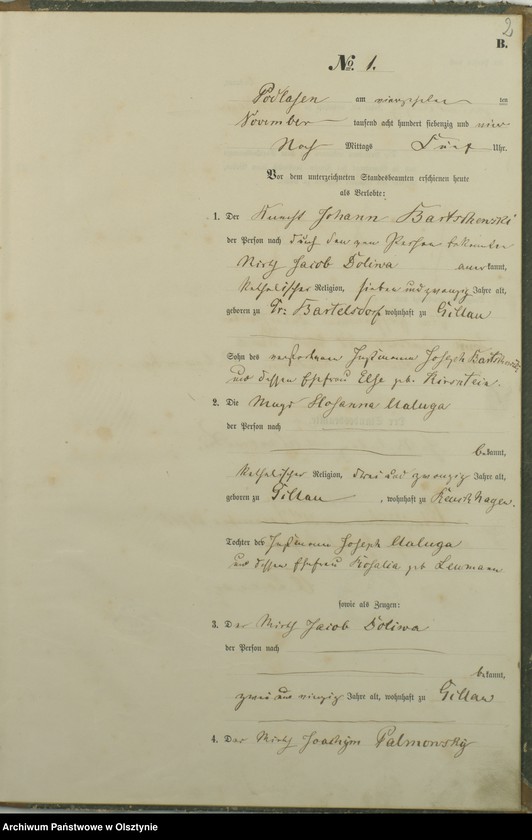 2
B.
No. 1.
Podlassen am vierzehnten ten
November tausend acht hundert siebenzig und vier
Nach Mittags Fünf Uhr.
Vor dem unterzeichneten Standesbeamten erschienen heute
als Verlobte:
1. Der Knecht Johann Bartschowski
der Person nach durch den von Person bekannten
Wirth Jacob Doliwa anerkannt,
katholischer Religion, sieben und zwanzig Jahre alt,
geboren zu Gr: Bartelsdorf wohnhaft zu Gillau
Sohn des verstorbenen Instmann Joseph
und dessen Ehefrau Else geb. Kirstein.
2. Die Magd Maluga
der Person nach
bekannt,
katholischer Religion, drei und zwanzig Jahre alt,
geboren zu Gillau, wohnhaft zu
Tochter des Instmann Joseph Maluga
und dessen Ehefrau Rosalia geb.
sowie als Zeugen:
3. Der Wirth Jacob Doliwa
der Person nach
bekannt,
zwei und vierzig Jahre alt, wohnhaft zu Gillau
4. Der Wirth Joachim Palmowski
Archiwum Państwowe w Olsztynie